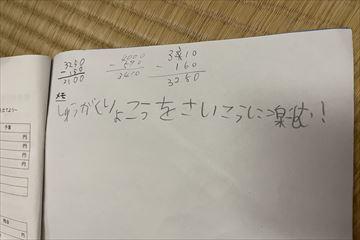 3250
-150
3100
4000
-590
3410
3410
-160
3250
メモ
しゅうがくりょこうをさいこうに楽む!
円
円
円
円